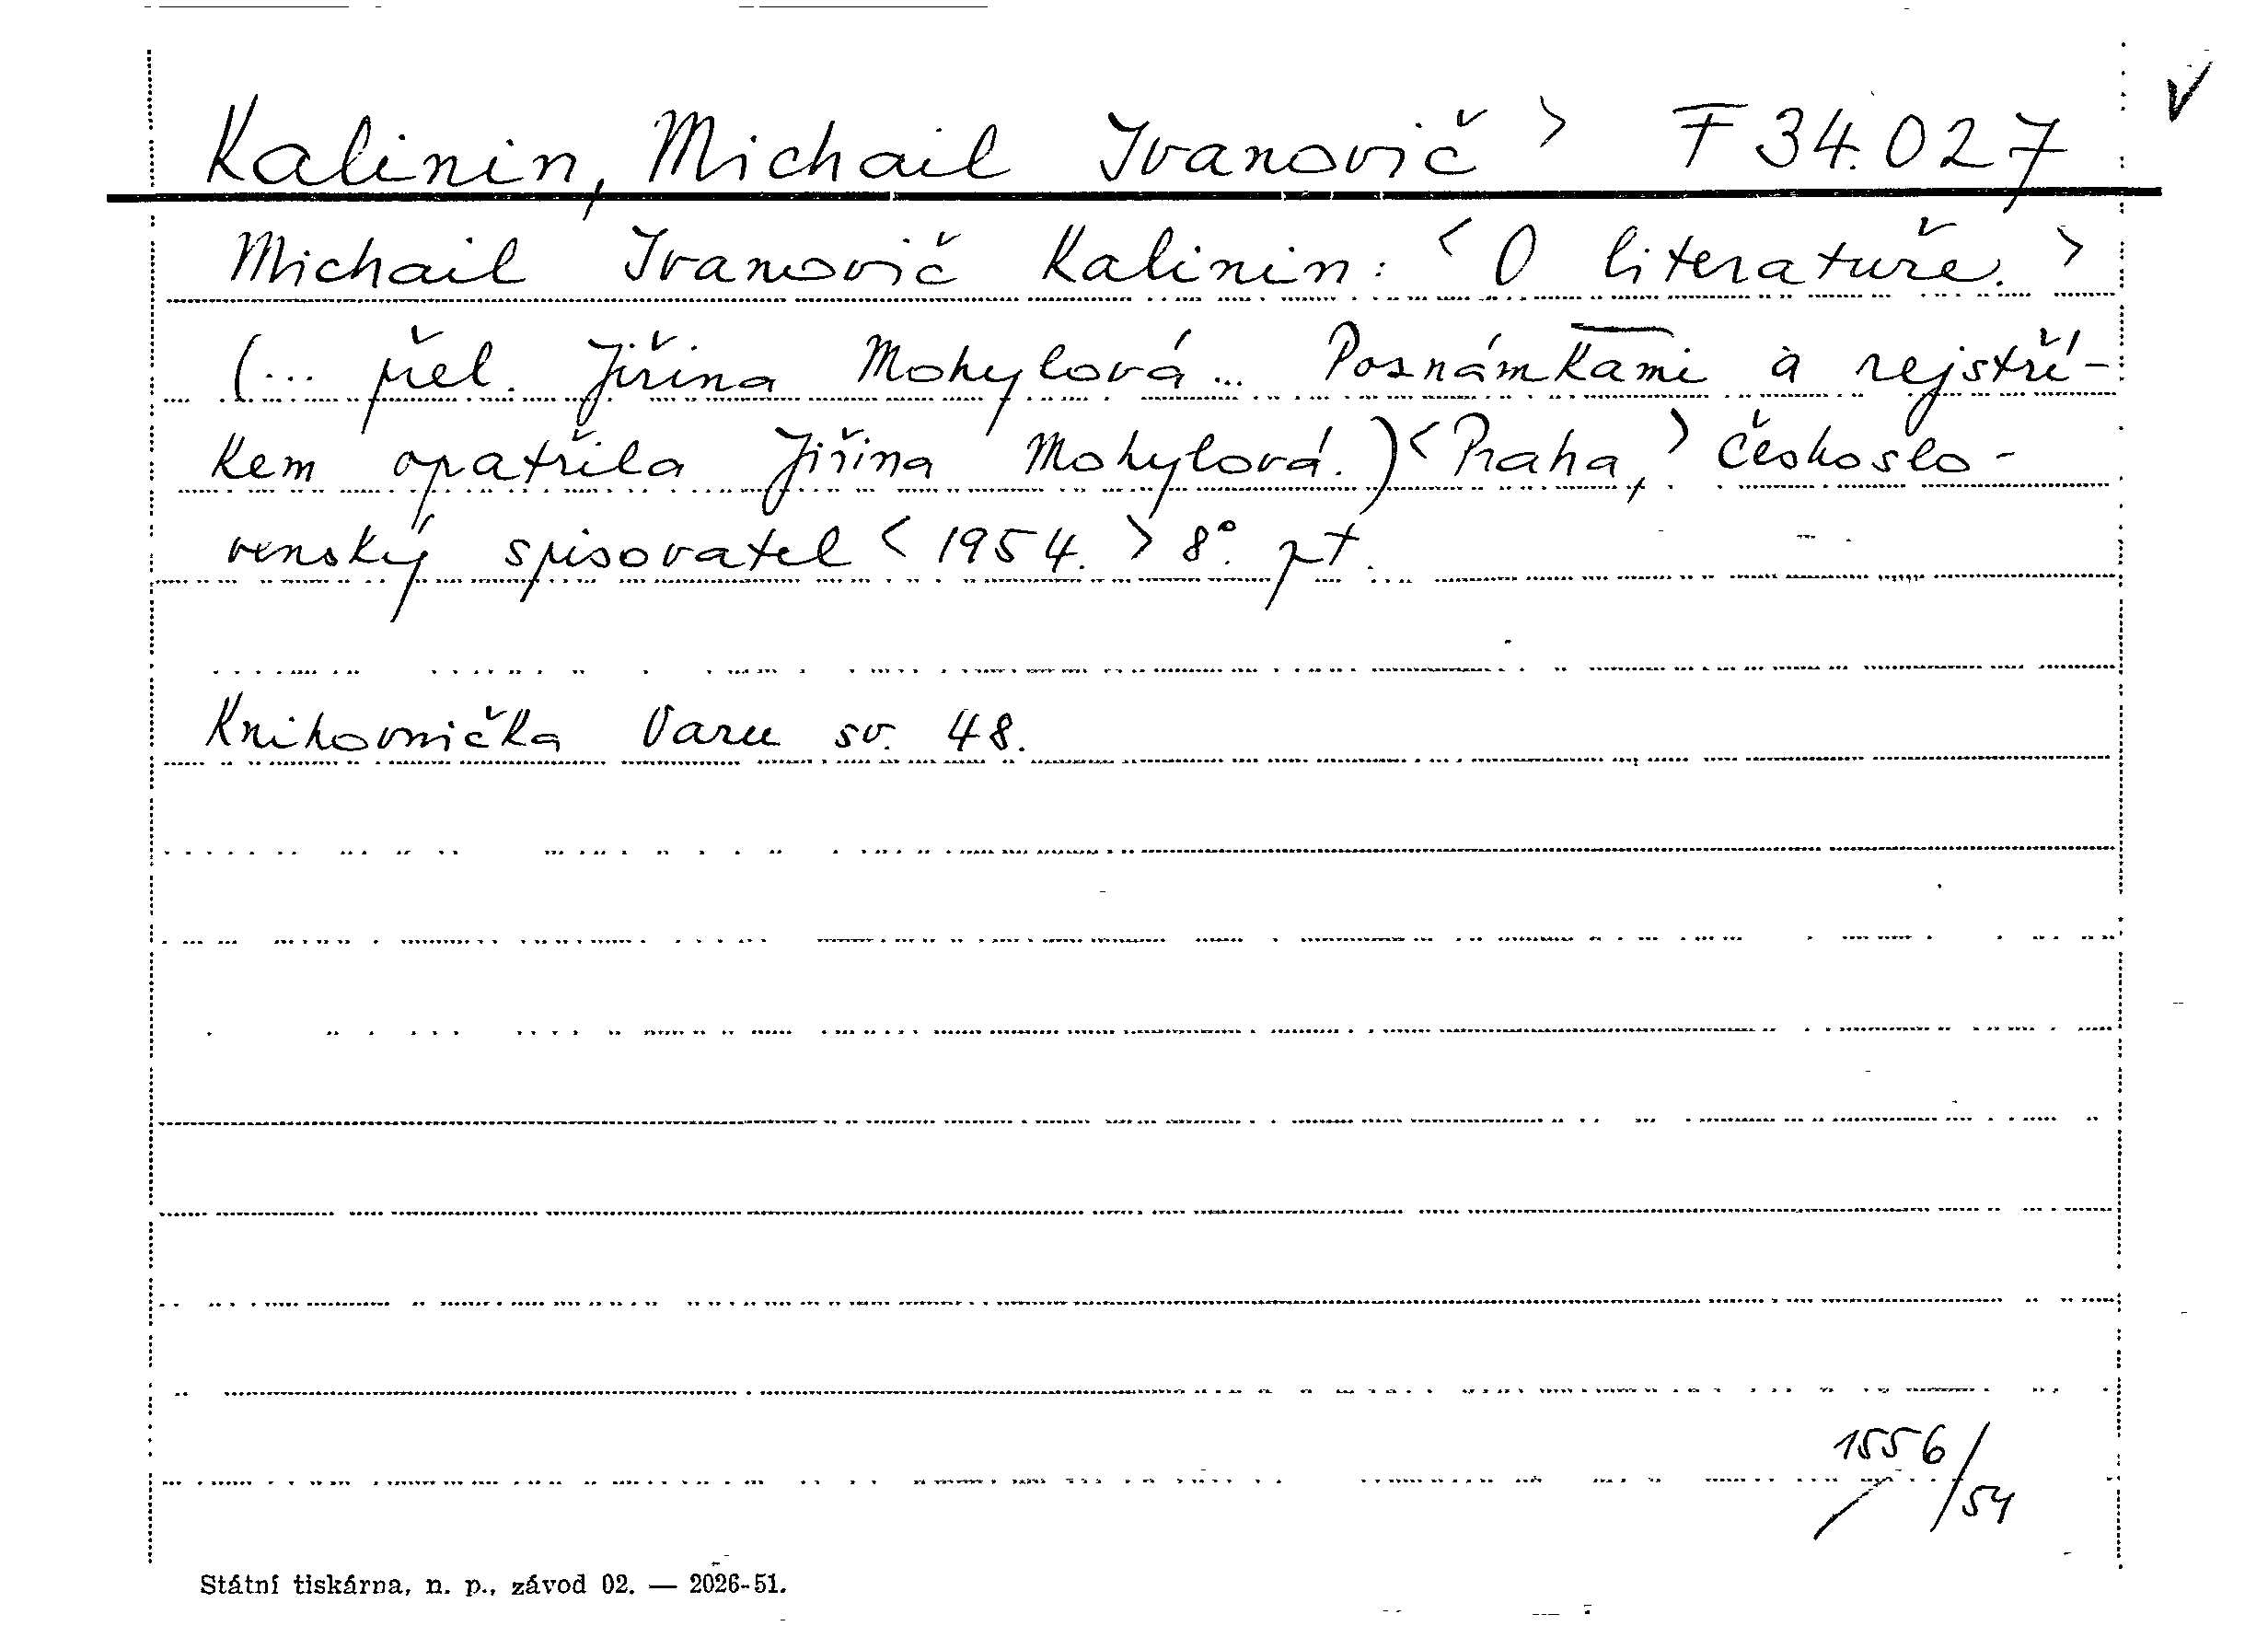 Kalinin, Michail Ivanovič > F 34.027 V
Michail Ivanovič Kalinin: < O literatuře. >
(... přel. Jiřina Mohylová... Poznámkami a rejstří-
kem opatřila Jiřina Mohylová.) < Praha, > Českoslo-
venský spisovatel < 1954. > 8°. pt.
Knihovnička Varu sv. 48.
1556/54
Státní tiskárna, n. p., závod 02. — 2026-51.